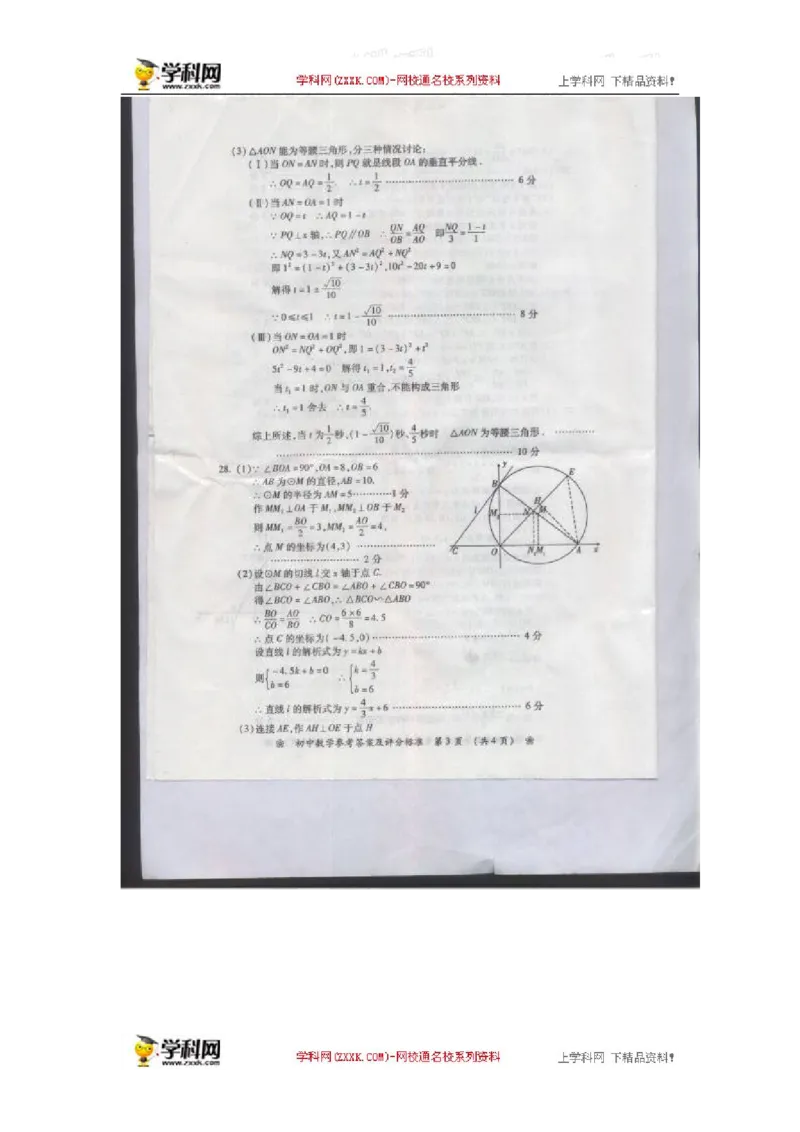 学科网
www.zxxk.com
学科网(ZXXK.COM)-网校通名校系列资料
上学科网 下精品资料!
(3)△AON 能为等腰三角形,分三种情况讨论:
(Ⅰ)当 ON=AN时,则 PQ 就是线段 OA 的垂直平分线.
∴OQ=AQ=1/2. ∴t=1/2 ………………………… 6分
(Ⅱ)当 AN=OA=1时
∵OQ=t ∴AQ=1-t
∵PQ⊥x轴,∴PQ∥OB ∴QN/OB=AQ/AO 即NQ/3=(1-t)/1
∴NQ=3-3t,又AN²=AQ²+NQ²
即1²=(1-t)²+(3-3t)²,10t²-20t+9=0
解得t=1±√10/10
∵0≤t≤1 ∴t=1-√10/10 ………………………… 8分
(Ⅲ)当ON=OA=1时
ON²=NQ²+OQ²,即1=(3-3t)²+t²
5t²-9t+4=0 解得t₁=1,t₂=4/5
当t₁=1时,ON与OA重合,不能构成三角形
∴t₁=1舍去 ∴t=4/5.
综上所述,当t为1/2秒,(1-√10/10)秒、4/5秒时 △AON为等腰三角形. …………
………………………………………… 10分
28. (1)∵∠BOA=90°,OA=8,OB=6
∴AB为⊙M的直径,AB=10.
∴⊙M的半径为AM=5…………1分
作MM₁⊥OA于M₁,MM₂⊥OB于M₂
则MM₁=BO/2=3,MM₂=AO/2=4,
∴点M的坐标为(4,3) …………………
………………… 2分
y
E
B
H
l
M₂
N
M
C
O
N₁
M₁
A
x
(2)设⊙M的切线l交x轴于点C.
由∠BCO+∠CBO=∠ABO+∠CBO=90°
得∠BCO=∠ABO,∴△BCO∽△ABO
∴BO/CO=AO/BO ∴CO=(6×6)/8=4.5
∴点C的坐标为(-4.5,0)………………………… 4分
设直线l的解析式为y=kx+b
则{-4.5k+b=0 b=6 ∴{k=4/3 b=6
∴直线l的解析式为y=4/3x+6 ………………………… 6分
(3)连接AE,作AH⊥OE于点H
初中数学参考答案及评分标准 第3页 (共4页)
学科网
www.zxxk.com
学科网(ZXXK.COM)-网校通名校系列资料
上学科网 下精品资料!